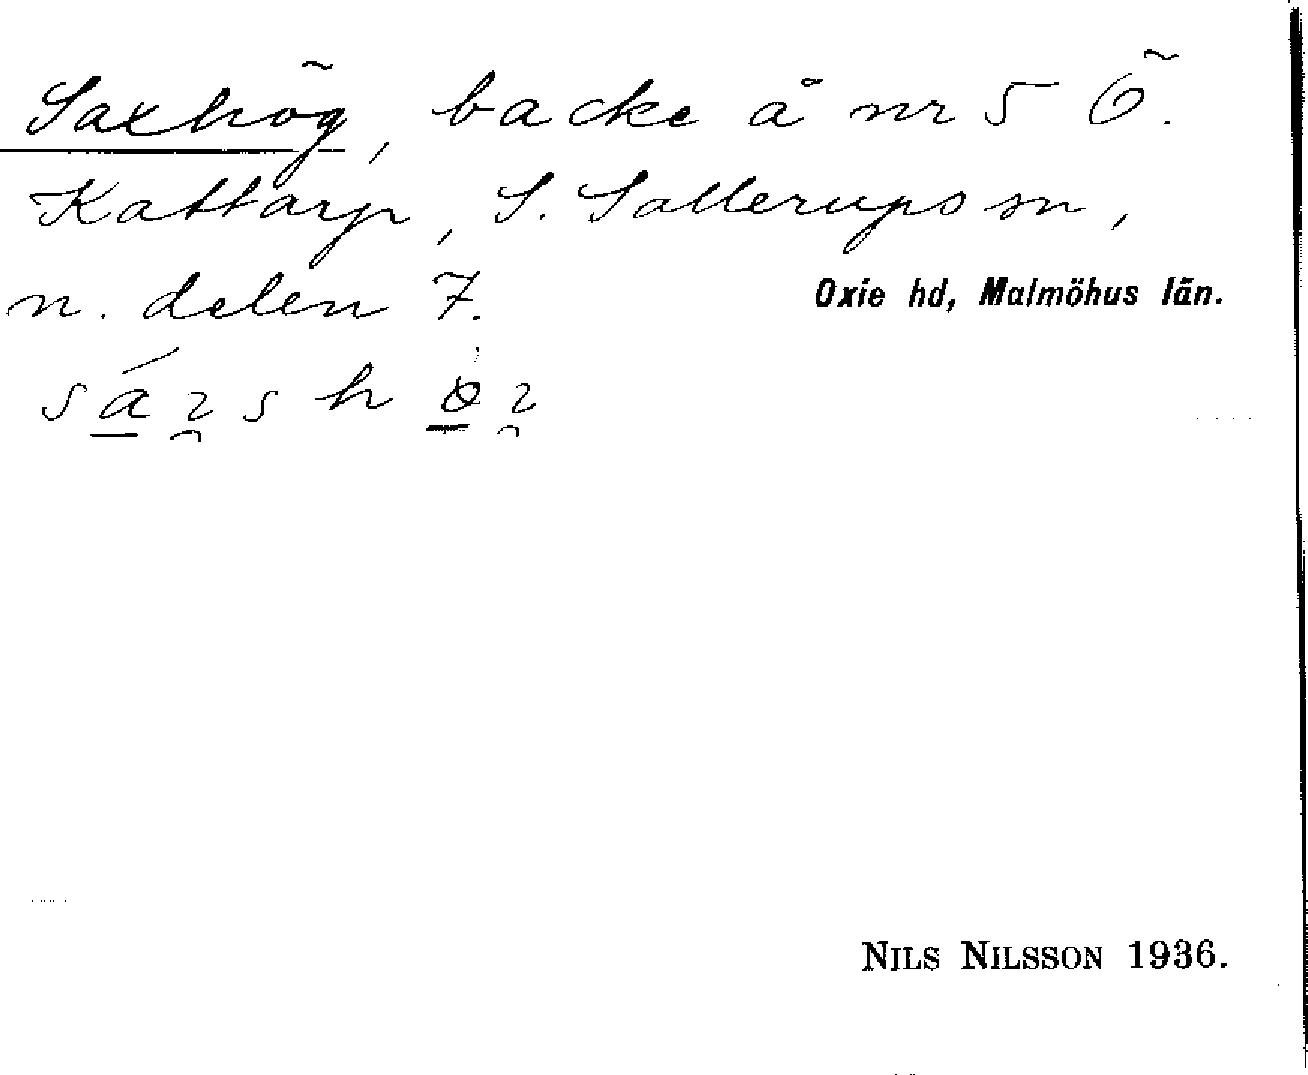 Saxhög, backe å nr 5 Ö.
Kattarp, S. Sallerups sn,
n. delen 7.
Oxie hd, Malmöhus län.
NILS NILSSON 1936.